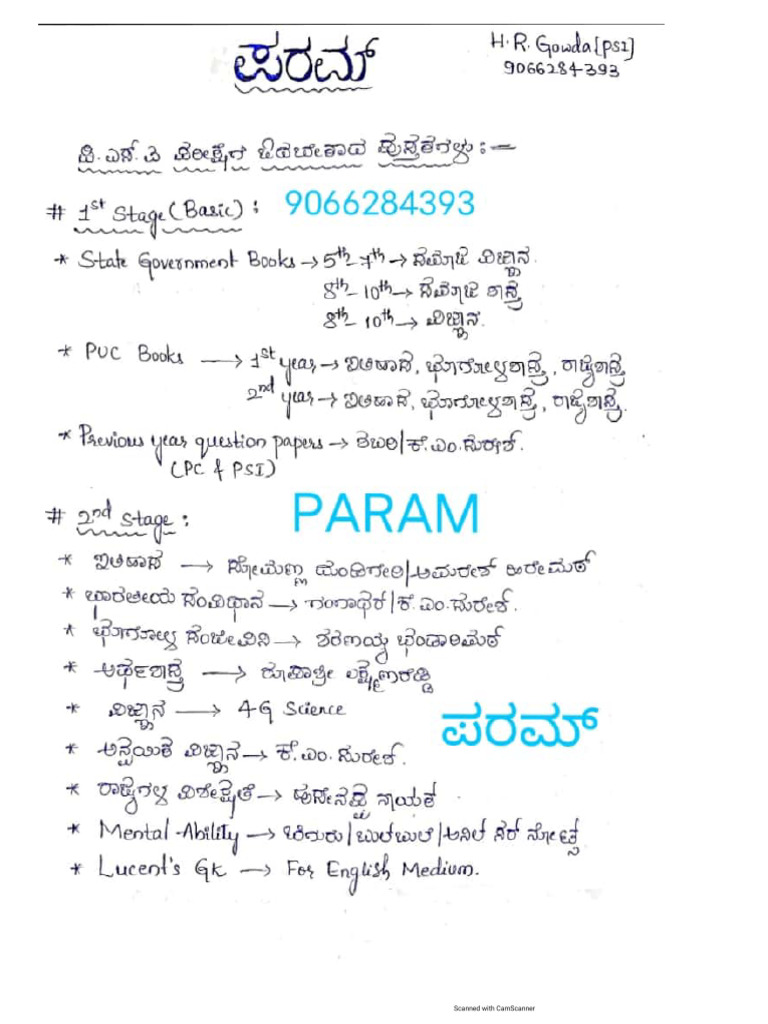 ಪರಮ್
H. R. Gowda [PSI]
9066284393
ಪಿ.ಎಸ್.ಐ ಪರೀಕ್ಷೆಗೆ ಓದಬೇಕಾದ ಪುಸ್ತಕಗಳು :-
# 1st Stage (Basic) : 9066284393
* State Government Books → 5th - 7th → ಸಮಾಜ ವಿಜ್ಞಾನ.
8th - 10th → ಸಮಾಜ ಶಾಸ್ತ್ರ
8th - 10th → ವಿಜ್ಞಾನ.
* PUC Books → 1st year → ಇತಿಹಾಸ, ಭೂಗೋಳಶಾಸ್ತ್ರ, ರಾಜ್ಯಶಾಸ್ತ್ರ
2nd year → ಇತಿಹಾಸ, ಭೂಗೋಳಶಾಸ್ತ್ರ, ರಾಜ್ಯಶಾಸ್ತ್ರ.
* Previous year question papers → ಶಬರಿ/ಕೆ.ಎಂ.ಸುರೇಶ್.
(PC & PSI)
# 2nd Stage : PARAM
* ಇತಿಹಾಸ → ಸೋಮಣ್ಣ ದಂಡಿಗೇರಿ/ಅಮರೇಶ್ ಹಿರೇಮಠ್
* ಭಾರತೀಯ ಸಂವಿಧಾನ → ಗಂಗಾಧರ್/ಕೆ.ಎಂ.ಸುರೇಶ್.
* ಭೂಗೋಳ ಸಂಜೀವಿನಿ → ಶರಣಯ್ಯ ಭಂಡಾರಿಮಠ್
* ಅರ್ಥಶಾಸ್ತ್ರ → ರೂಪಾಶ್ರೀ
* ವಿಜ್ಞಾನ → 4G Science
ಪರಮ್
* ಅನ್ವಯಿಕ ವಿಜ್ಞಾನ → ಕೆ.ಎಂ.ಸುರೇಶ್.
* ರಾಜ್ಯಗಳ ವಿಶೇಷತೆ → ಹುಸೇನಪ್ಪ ನಾಯಕ
* Mental-Ability → ಚಿಗುರು/ಬುಲ್‌ಬುಲ್/ಅನಿಲ್ ಸರ್ ನೋಟ್ಸ್
* Lucent's Gk → For English Medium.
Scanned with CamScanner